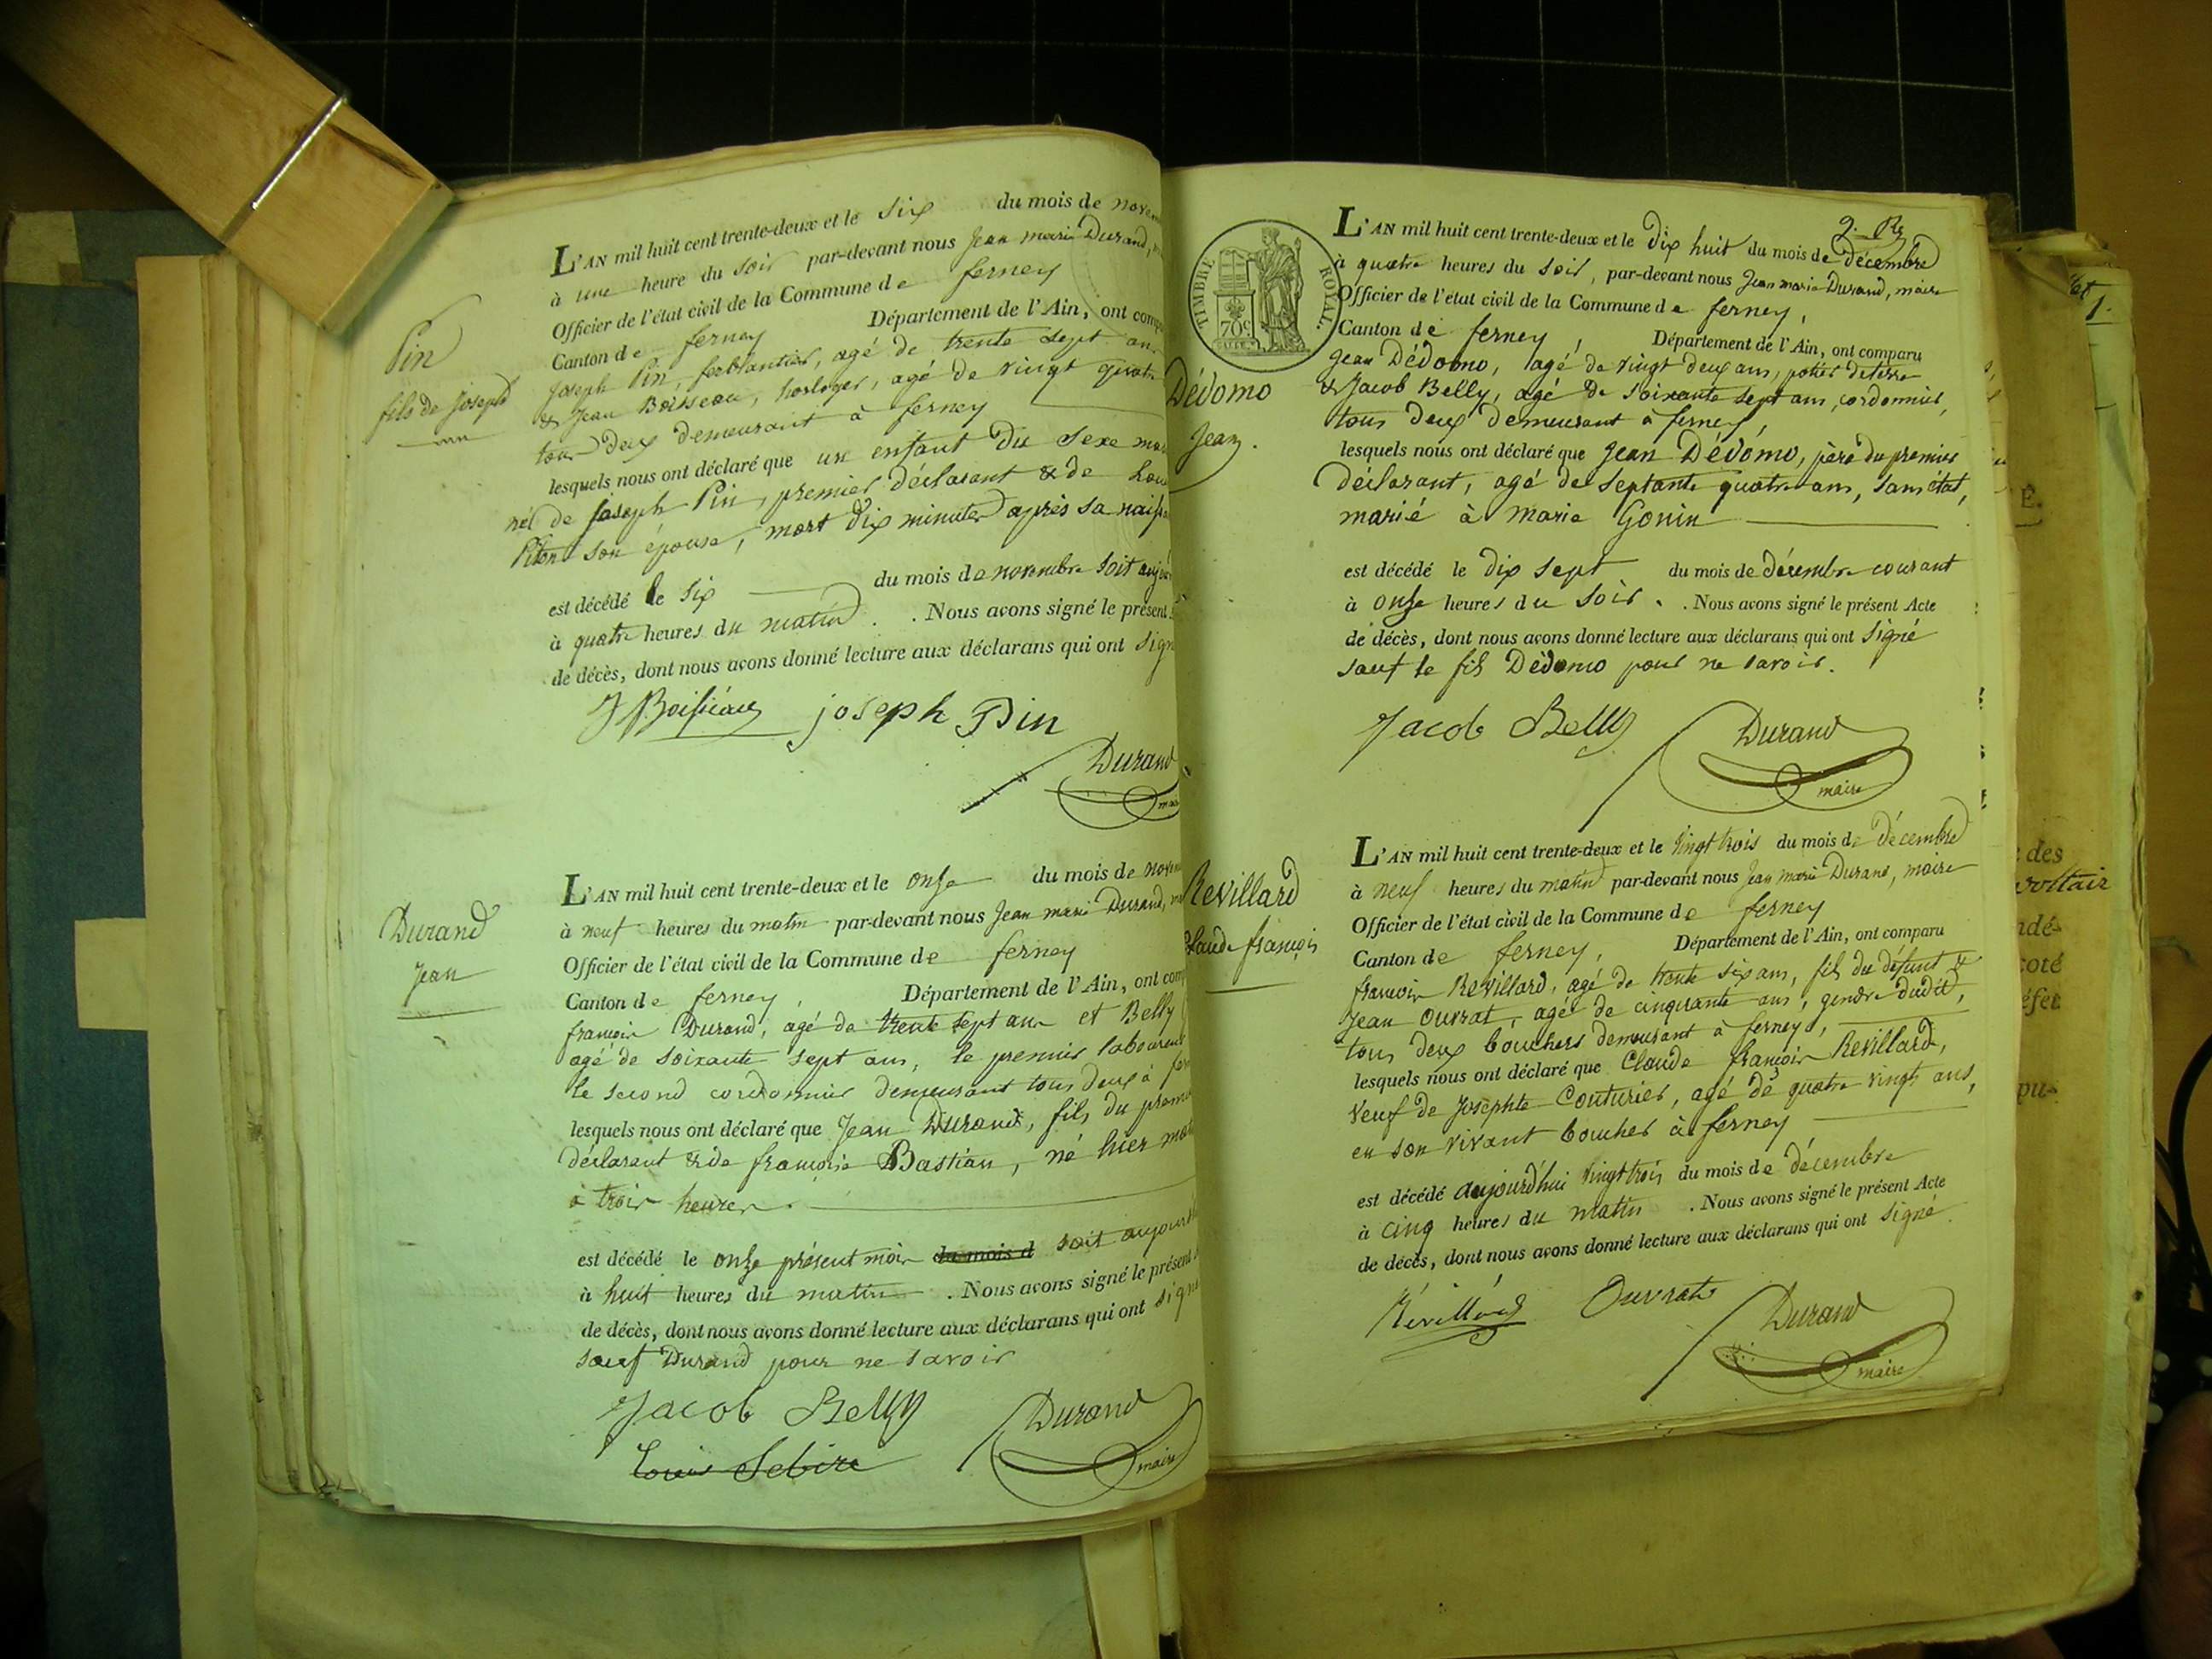 L'AN mil huit cent trente-deux et le six du mois de
à une heure du soir par-devant nous Jean marie Durand,
Officier de l'état civil de la Commune de ferney
Canton de ferney Département de l'Ain, ont
Pin
fils de Joseph
Joseph Pin, ferblantier, agé de trente sept ans
& Jean Boisseau, horloger, agé de vingt quatre
tous deux demeurant à ferney
lesquels nous ont déclaré que un enfant du sexe
né de joseph Pin, premier déclarant & de
Piton son épouse, mort dix minutes après sa
est décédé le six du mois de novembre soit
à quatre heures du matin . Nous avons signé le présent
de décès, dont nous avons donné lecture aux déclarans qui ont
joseph Pin
Durand
Durand
Jean
L'AN mil huit cent trente-deux et le onze du mois de
à neuf heures du matin par-devant nous Jean marie Durand,
Officier de l'état civil de la Commune de ferney
Canton de ferney, Département de l'Ain, ont
françois Durand, agé de trente sept ans et Belly
agé de soixante sept ans, le premier laboureur
le second cordonnier demeurant tous deux à
lesquels nous ont déclaré que Jean Durand, fils du
déclarant & de françoise Bastian, né hier
à trois heures.
est décédé le onze présent mois du mois d soit
à huit heures du matin . Nous avons signé le présent
de décès, dont nous avons donné lecture aux déclarans qui ont
sauf Durand pour ne savoir
Jacob Belly
Louis Sebire
Durand
maire
TIMBRE ROYAL.
70c
L'AN mil huit cent trente-deux et le dix huit du mois de décembre
à quatre heures du soir, par-devant nous Jean marie Durand, maire
Officier de l'état civil de la Commune de ferney,
Canton de ferney, Département de l'Ain, ont comparu
Dédomo
Jean.
Jean Dédomo, agé de vingt deux ans, potier de terre
& Jacob Belly, agé de soixante sept ans, cordonnier,
tous deux demeurant à ferney,
lesquels nous ont déclaré que Jean Dédomo, père du premier
déclarant, agé de septante quatre ans, sans état,
marié à marie Gonin
est décédé le dix sept du mois de décembre courant
à onze heures du soir. . Nous avons signé le présent Acte
de décès, dont nous avons donné lecture aux déclarans qui ont signé
sauf le fils Dédomo pour ne savoir.
Jacob Belly
Durand
maire
Revillard
Claude françois
L'AN mil huit cent trente-deux et le vingt trois du mois de décembre
à neuf heures du matin par-devant nous Jean marie Durand, maire
Officier de l'état civil de la Commune de ferney
Canton de ferney, Département de l'Ain, ont comparu
françois Revillard, agé de trente six ans, fils du défunt &
Jean Ouvrat, agé de cinquante ans, gendre dudit,
tous deux bouchers demeurant à ferney,
lesquels nous ont déclaré que Claude françois Revillard,
veuf de Josephte Couturier, agé de quatre vingts ans,
en son vivant boucher à ferney
est décédé aujourd'hui vingt trois du mois de décembre
à cinq heures du matin . Nous avons signé le présent Acte
de décès, dont nous avons donné lecture aux déclarans qui ont signé
Révillard
Ouvrat
Durand
maire